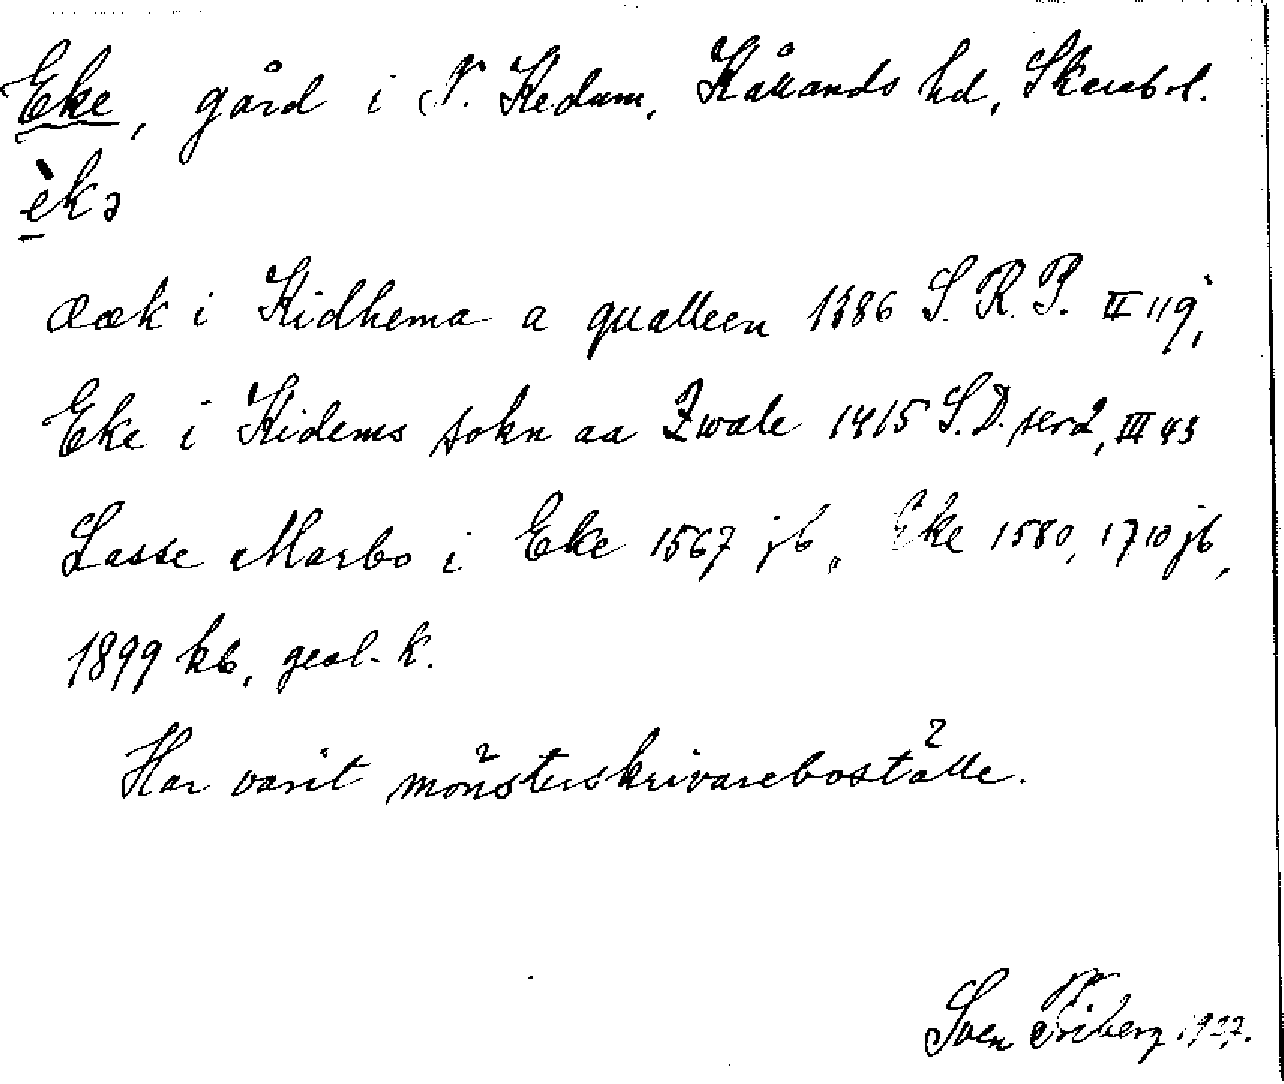 Eke, gård i N. Kedum, Kållands hd, Skarab. l.
èkə
ææk i Kidhema a qualleen 1386 S. R. P. II 119,
Eke i Kidems sokn aa Qwale 1415 S. D. ser 2, III 43
Lasse Marbo i Eke 1567 jb, Eke 1580, 1710 jb,
1899 kb, geol. k.
Har varit mönsterskrivareboställe.
Sven Friberg 1927.